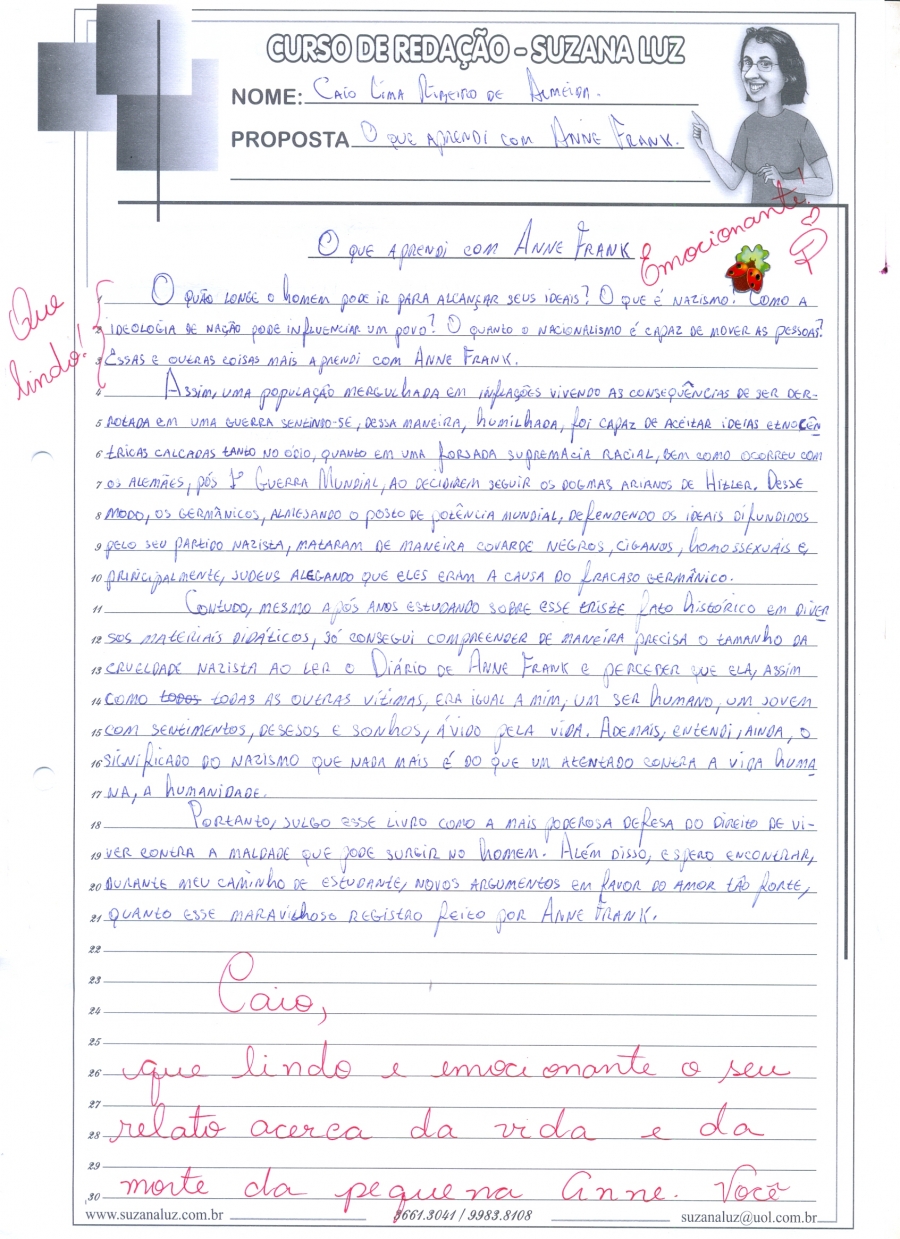 CURSO DE REDAÇÃO - SUZANA LUZ
NOME: Caio Lima Ribeiro de Almeida.
PROPOSTA O que aprendi com Anne Frank.
O que aprendi com Anne Frank
Emocionante!
Que lindo!
O quão longe o homem pode ir para alcançar seus ideais? O que é nazismo? Como a
2 ideologia de nação pode influenciar um povo? O quanto o nacionalismo é capaz de mover as pessoas?
3 Essas e outras coisas mais aprendi com Anne Frank.
4 Assim, uma população mergulhada em inflações vivendo as consequências de ser der-
5 rotada em uma guerra sentindo-se, dessa maneira, humilhada, foi capaz de aceitar ideias etnocên
6 tricas calcadas tanto no ódio, quanto em uma forsada supremacia racial, bem como ocorreu com
7 os alemães, pós 1ª Guerra Mundial, ao decidirem seguir os dogmas arianos de Hitler. Desse
8 modo, os germânicos, almesando o posto de potência mundial, defendendo os ideais difundidos
9 pelo seu partido nazista, mataram de maneira covarde negros, ciganos, homossexuais e,
10 principalmente, judeus alegando que eles eram a causa do fracaso germânico.
11 Contudo, mesmo após anos estudando sobre esse triste fato histórico em diver
12 sos materiais didáticos, só consegui compreender de maneira precisa o tamanho da
13 crueldade nazista ao ler o Diário de Anne Frank e perceber que ela, assim
14 como todos todas as outras vítimas, era igual a mim, um ser humano, um jovem
15 com sentimentos, desejos e sonhos, ávido pela vida. Ademais, entendi, ainda, o
16 significado do nazismo que nada mais é do que um atentado contra a vida huma
17 na, a humanidade.
18 Portanto, julgo esse livro como a mais poderosa defesa do direito de vi-
19 ver contra a maldade que pode surgir no homem. Além disso, espero encontrar,
20 durante meu caminho de estudante, novos argumentos em favor do amor tão forte,
21 quanto esse maravilhoso registro feito por Anne Frank.
22
23
24 Caio,
25
26 que lindo e emocionante o seu
27
28 relato acerca da vida e da
29
30 morte da pequena Anne. Você
www.suzanaluz.com.br 3661.3041 / 9983.8108 suzanaluz@uol.com.br